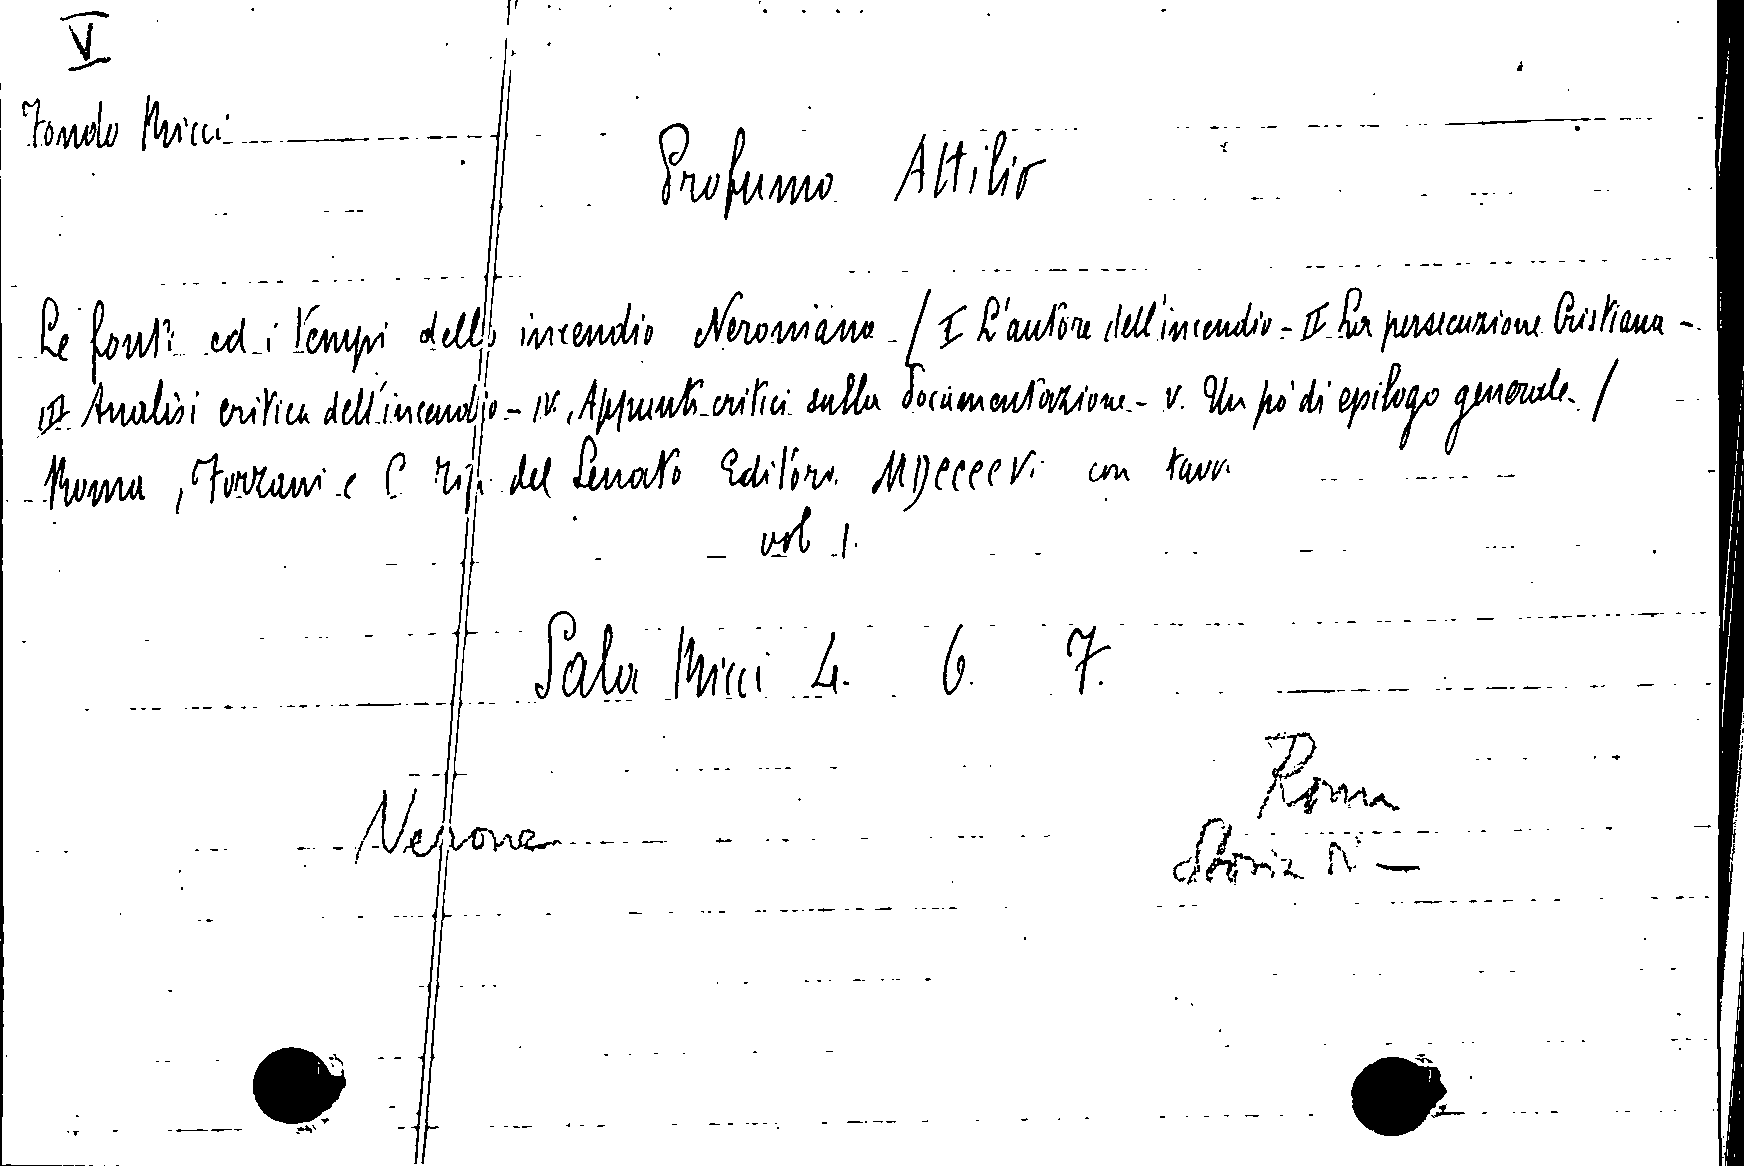 V
Fondo Micci
Profumo Attilio
Le fonti ed i tempi dello incendio Neroniano / I L'autore dell'incendio - II La persecuzione Cristiana -
III Analisi critica dell'incendio - IV. Appunti critici sulla documentazione - V. Un pò di epilogo generale. /
Roma, Forzani e C Tip. del Senato Editore. MDCCCCV. con tavv.
vol 1.
Sala Micci 4. 6. 7.
Roma
Nerone
Storia di —